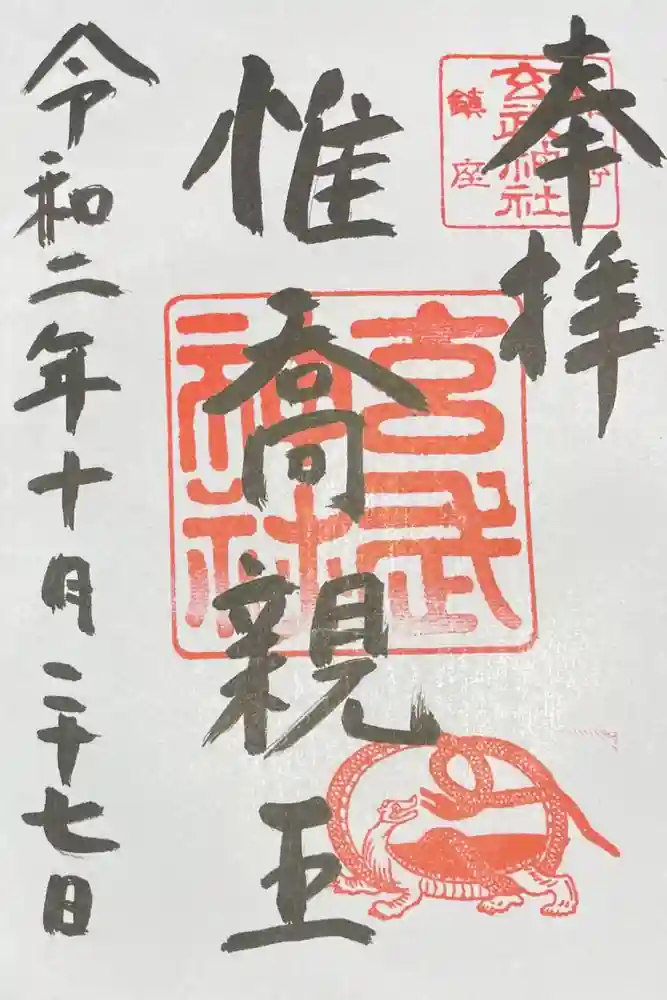 奉拝
玄武神社
鎮座
惟喬親王
玄武神社
令和二年十月二十七日